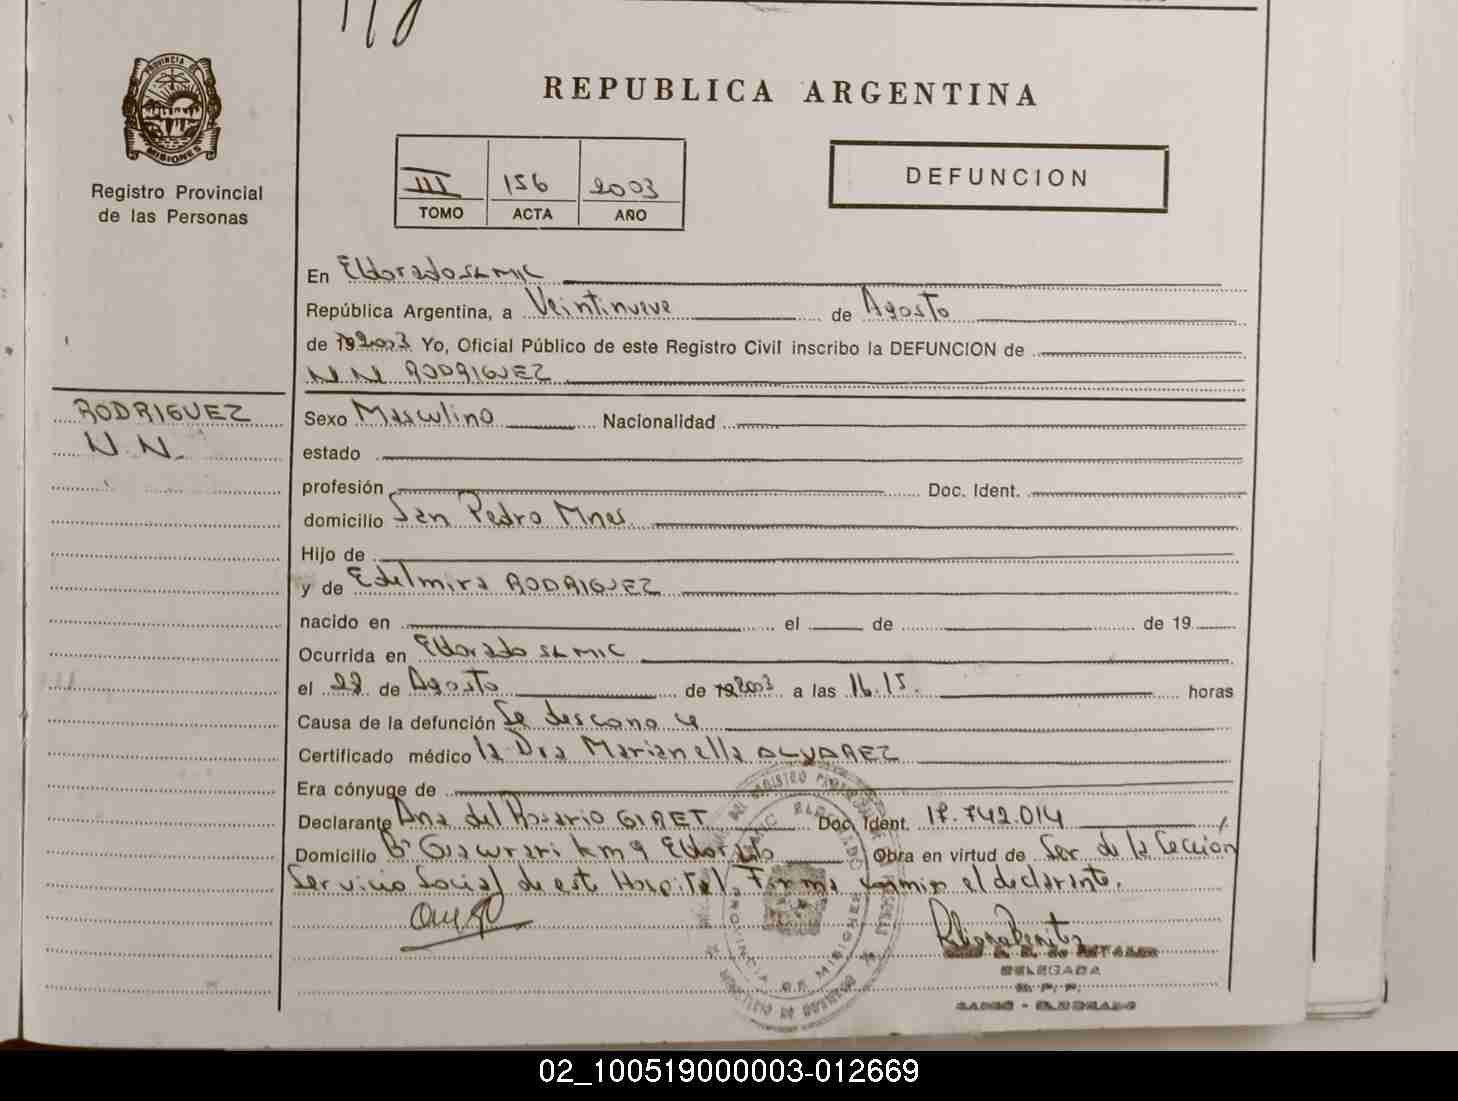 REPUBLICA ARGENTINA
PROVINCIA DE
MISIONES
Registro Provincial
de las Personas
III 156 2003
TOMO ACTA AÑO
DEFUNCION
En Eldorado
República Argentina, a Veintinueve de Agosto
de 19 2003 Yo, Oficial Público de este Registro Civil inscribo la DEFUNCION de
N N RODRIGUEZ
RODRIGUEZ
N.N.
Sexo Masculino Nacionalidad
estado
profesión Doc. Ident.
domicilio San Pedro Mnes
Hijo de
y de Edelmira RODRIGUEZ
nacido en el de de 19
Ocurrida en Eldorado
el de Agosto de 19 2003 a las 16.15. horas
Causa de la defunción Se desconoce
Certificado médico la Dra Marianella ALVAREZ
Era cónyuge de
Declarante Ana del Rosario GIRET Doc. Ident. 17.742.014
Domicilio Bº Guacurari km 9 Eldorado Obra en virtud de Ser de la Sección
Servicio Social de este Hospital. Firma conmigo el declarante.
DELEGADA
R. P. P.
ELDORADO
PROVINCIA DE MISIONES
02_100519000003-012669